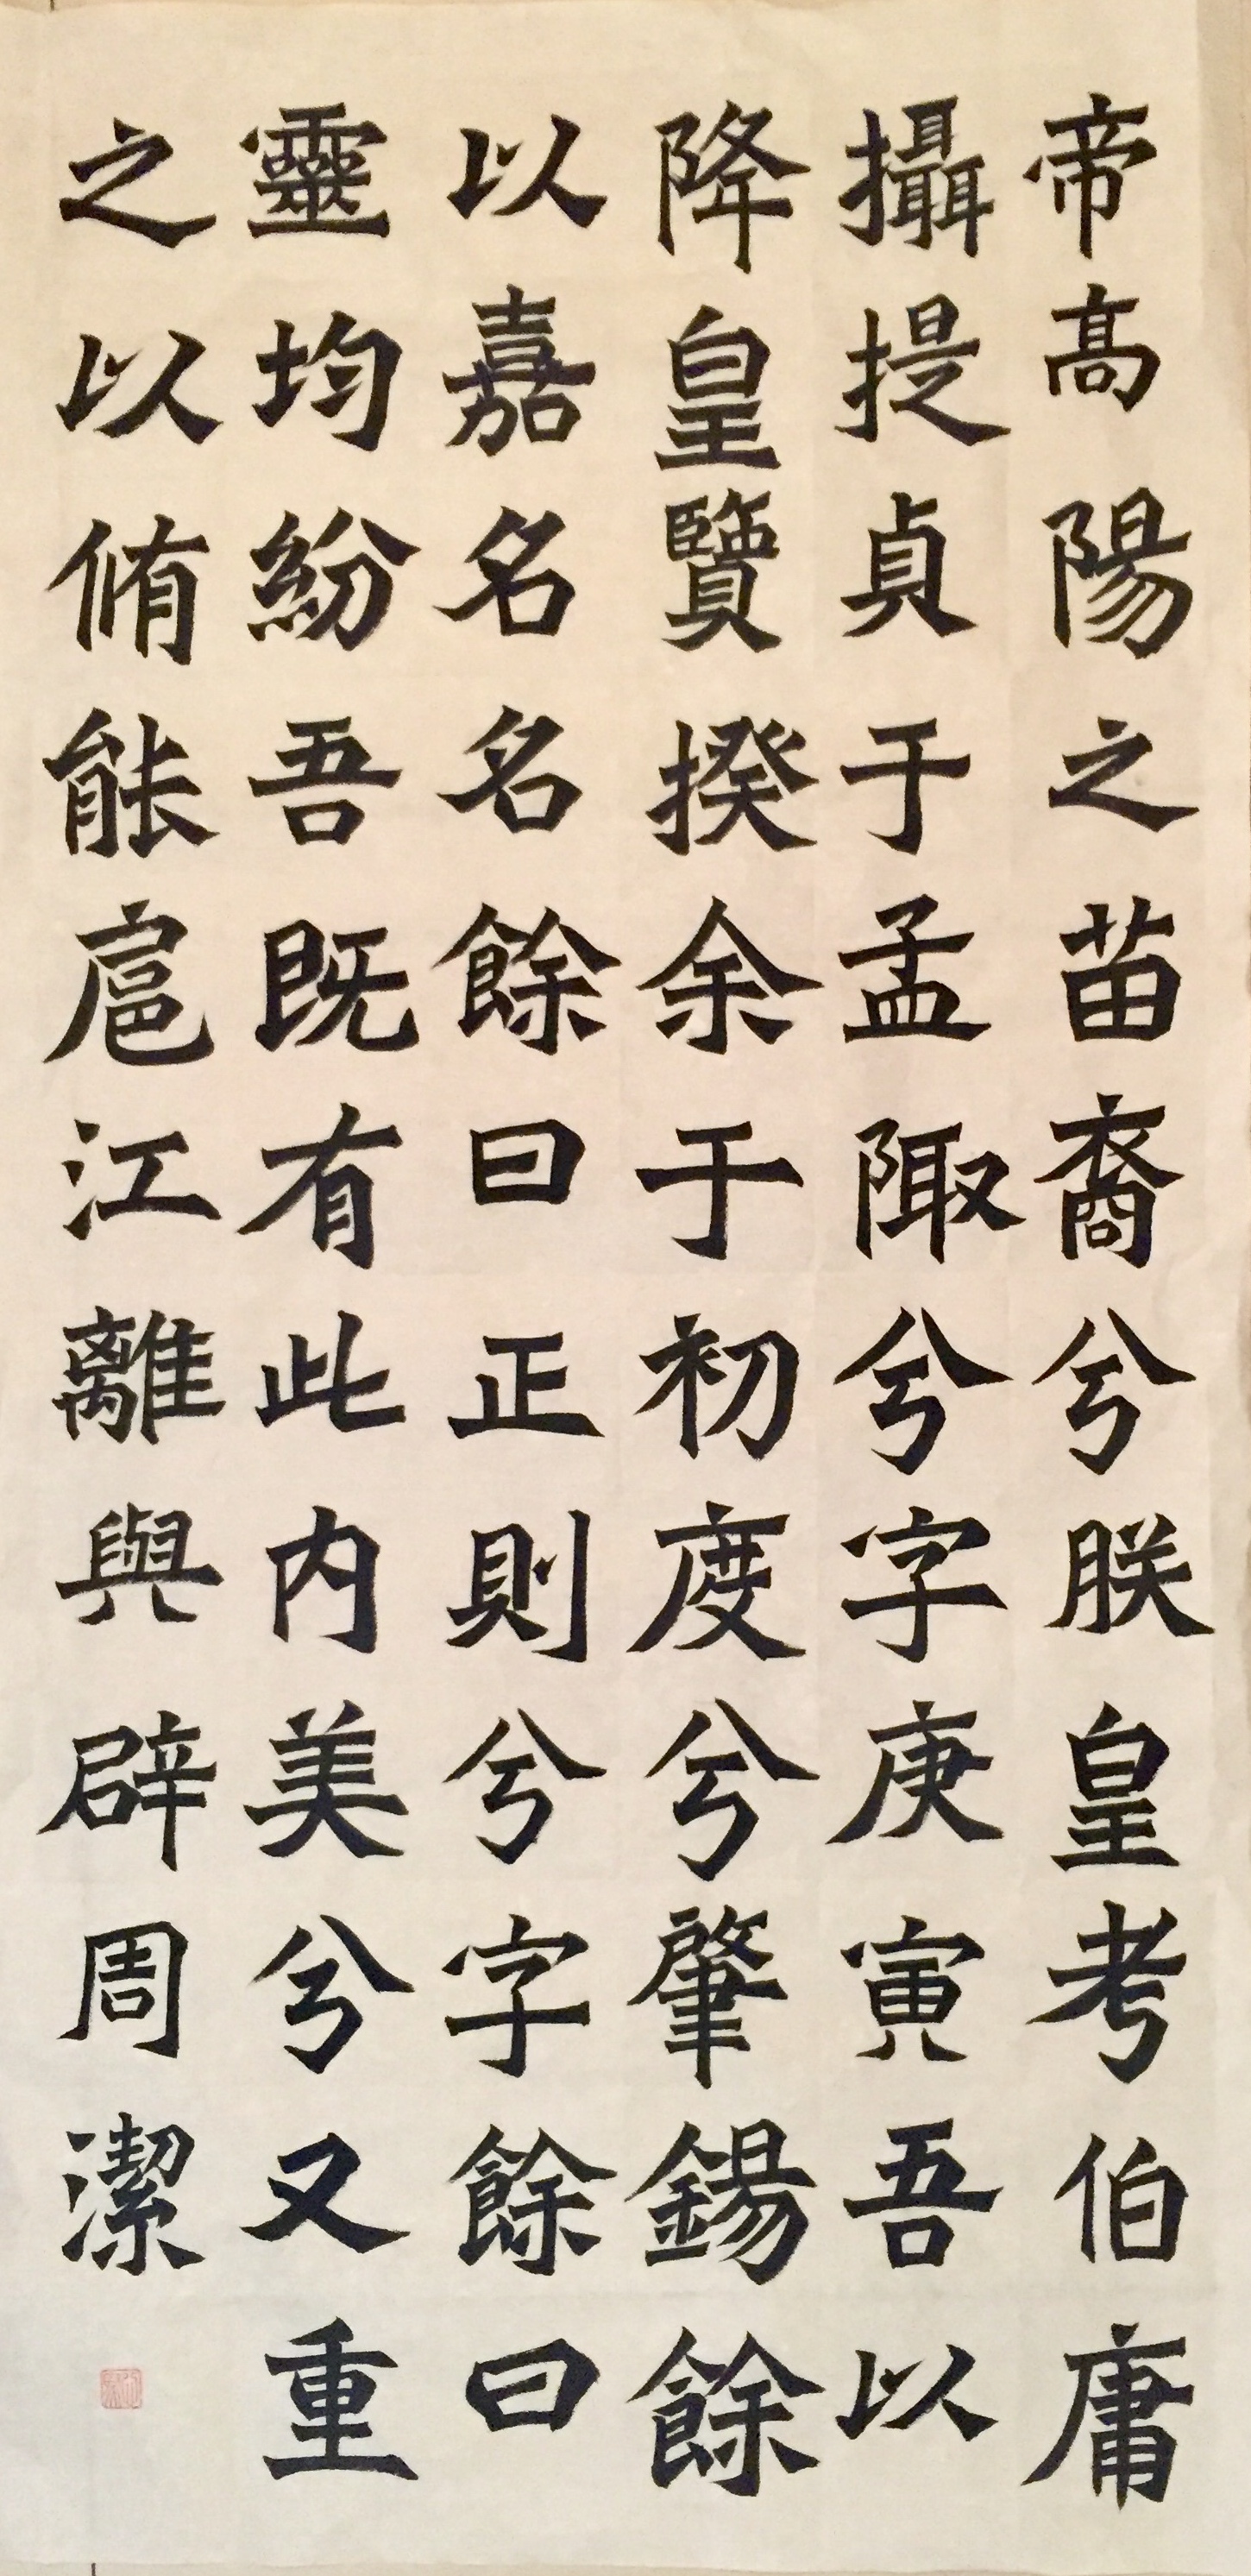 帝高陽之苗裔兮朕皇考伯庸
攝提貞于孟陬兮字庚寅吾以
降皇覽揆余于初度兮肇錫餘
以嘉名名餘曰正則兮字餘曰
靈均紛吾既有此内美兮又重
之以脩能扈江離與辟周潔